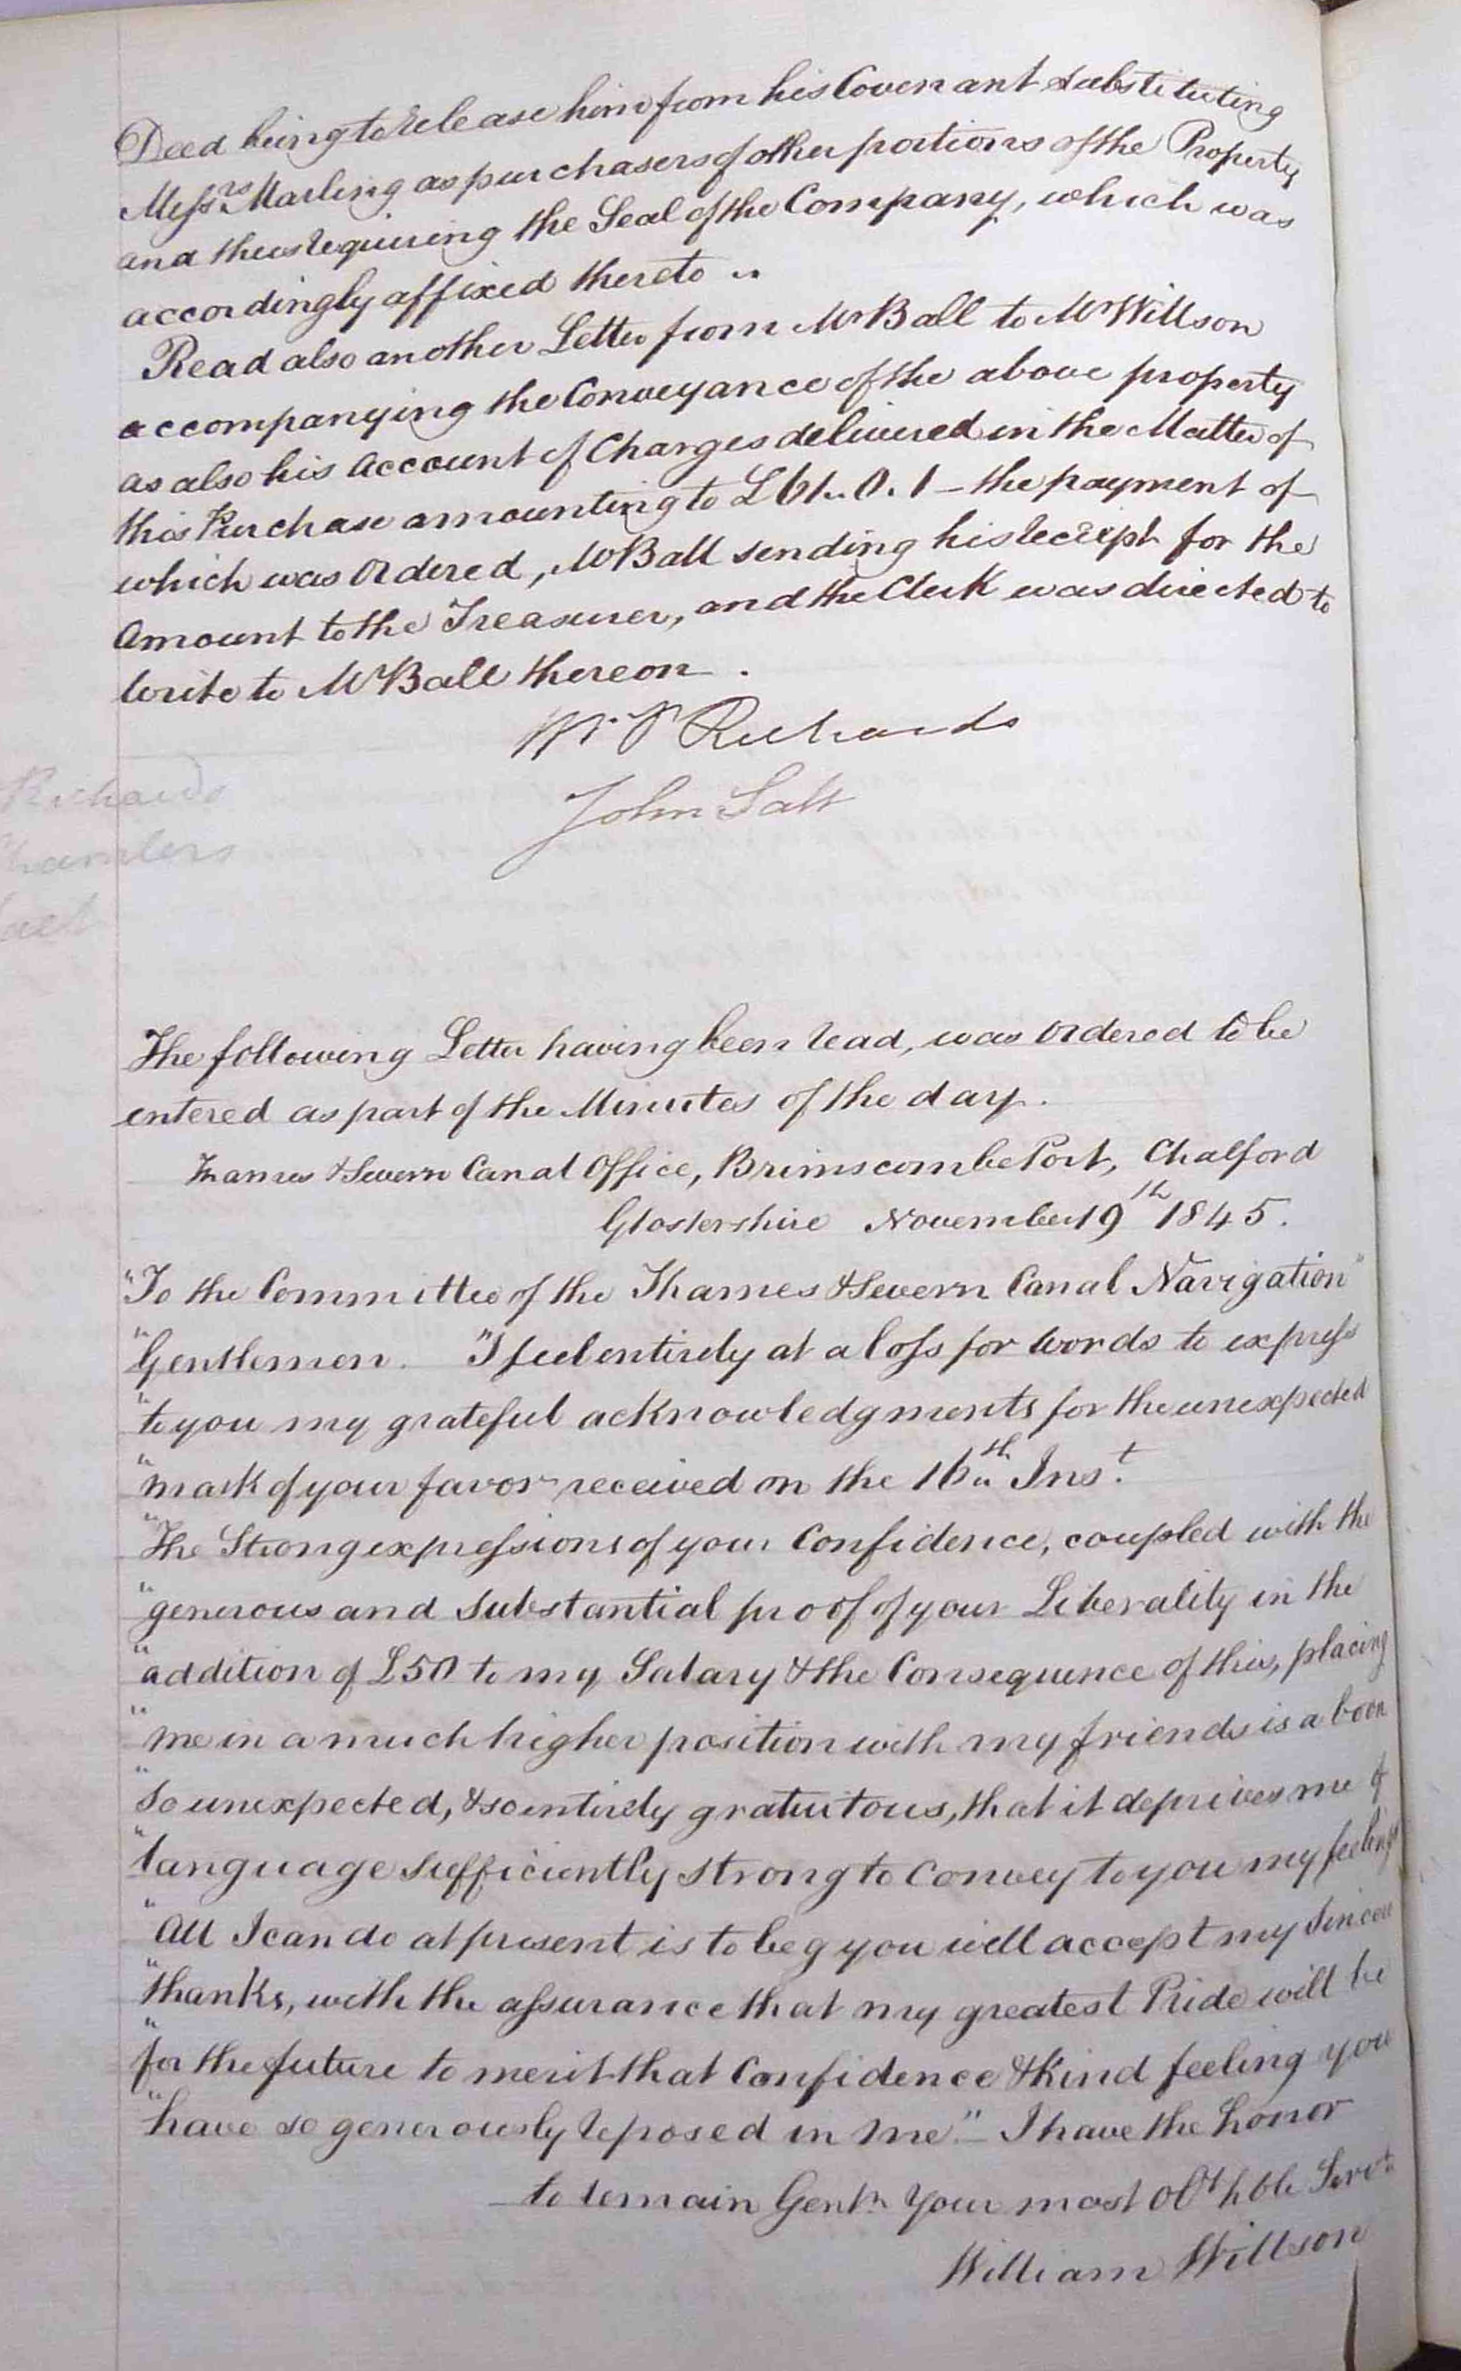 Deed being to release him from his Covenant substituting
Messrs Marling as purchasers of other portions of the Property
and thus requiring the Seal of the Company, which was
accordingly affixed thereto
Read also another Letter from Mr Ball to Mr Willson
accompanying the Conveyance of the above property
as also his Account of Charges delivered in the Matter of
this Purchase amounting to £61.. 0. 1 – the payment of
which was Ordered, Mr Ball sending his receipt for the
Amount to the Treasurer, and the Clerk was directed to
write to Mr Ball thereon .
Wm P Richards
John Salt
Richards
The following Letter having been read, was Ordered to be
entered as part of the Minutes of the day.
Thames & Severn Canal Office, Brimscombe Port, Chalford
Glostershire November 19th 1845.
"To the Committee of the Thames & Severn Canal Navigation"
"Gentlemen. "I feel entirely at a loss for words to express
"to you my grateful acknowledgments for the unexpected
"mark of your favor received on the 16th Inst.
"The Strong expressions of your Confidence, coupled with the
"generous and substantial proof of your Liberality in the
"addition of £50 to my Salary & the Consequence of this, placing
"me in a much higher position with my friends is a boon
"so unexpected, & so entirely gratuitous, that it deprives me of
"language sufficiently strong to convey to you my feelings
"All I can do at present is to beg you will accept my sincere
"thanks, with the assurance that my greatest Pride will be
"for the future to merit that Confidence & Kind feeling you
"have so generously reposed in me." – I have the honor
to remain Gentn Your most Obt hble Servt
William Willson